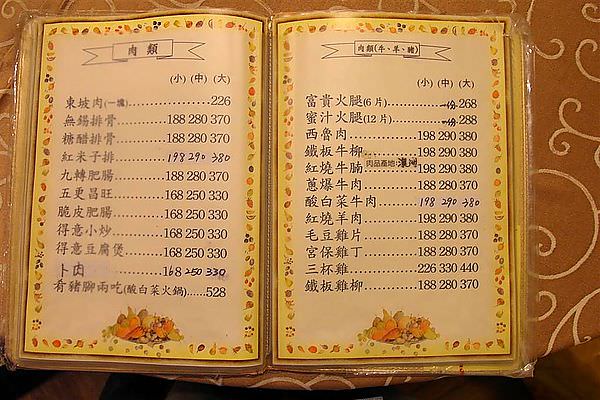 肉類
(小) (中) (大)
東坡肉(一塊)..................226
無錫排骨............188 280 370
糖醋排骨............188 280 370
紅米子排............198 290 380
九轉肥腸............188 280 370
五更昌旺............168 250 330
脆皮肥腸............168 250 330
得意小炒............168 250 330
得意豆腐煲.........168 250 330
卜肉..................168 250 330
有豬腳兩吃(酸白菜火鍋)......528
肉類(牛、羊、豬)
(小) (中) (大)
富貴火腿(6片)............一份268
蜜汁火腿(12片)............一份288
西魯肉............198 290 380
鐵板牛柳............198 290 380
肉品產地:澳洲
紅燒牛腩............198 290 380
蔥爆牛肉............188 280 370
酸白菜牛肉.........198 290 380
紅燒羊肉............198 290 380
毛豆雞片............188 280 370
宮保雞丁............188 280 370
三杯雞...............226 330 440
鐵板雞柳............188 280 370